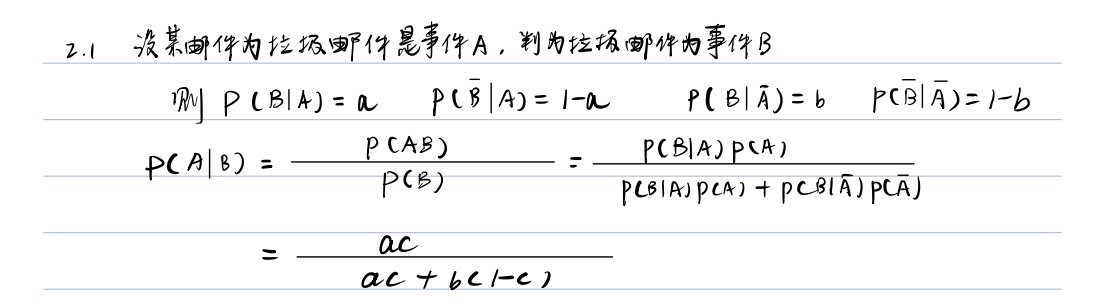 2.1 设某邮件为垃圾邮件是事件A，判为垃圾邮件为事件B
则 P(B|A)=a P(B̄|A)=1-a P(B|Ā)=b P(B̄|Ā)=1-b
P(A|B) = P(AB) / P(B) = P(B|A)P(A) / P(B|A)P(A) + P(B|Ā)P(Ā)
= ac / ac + b(1-c)